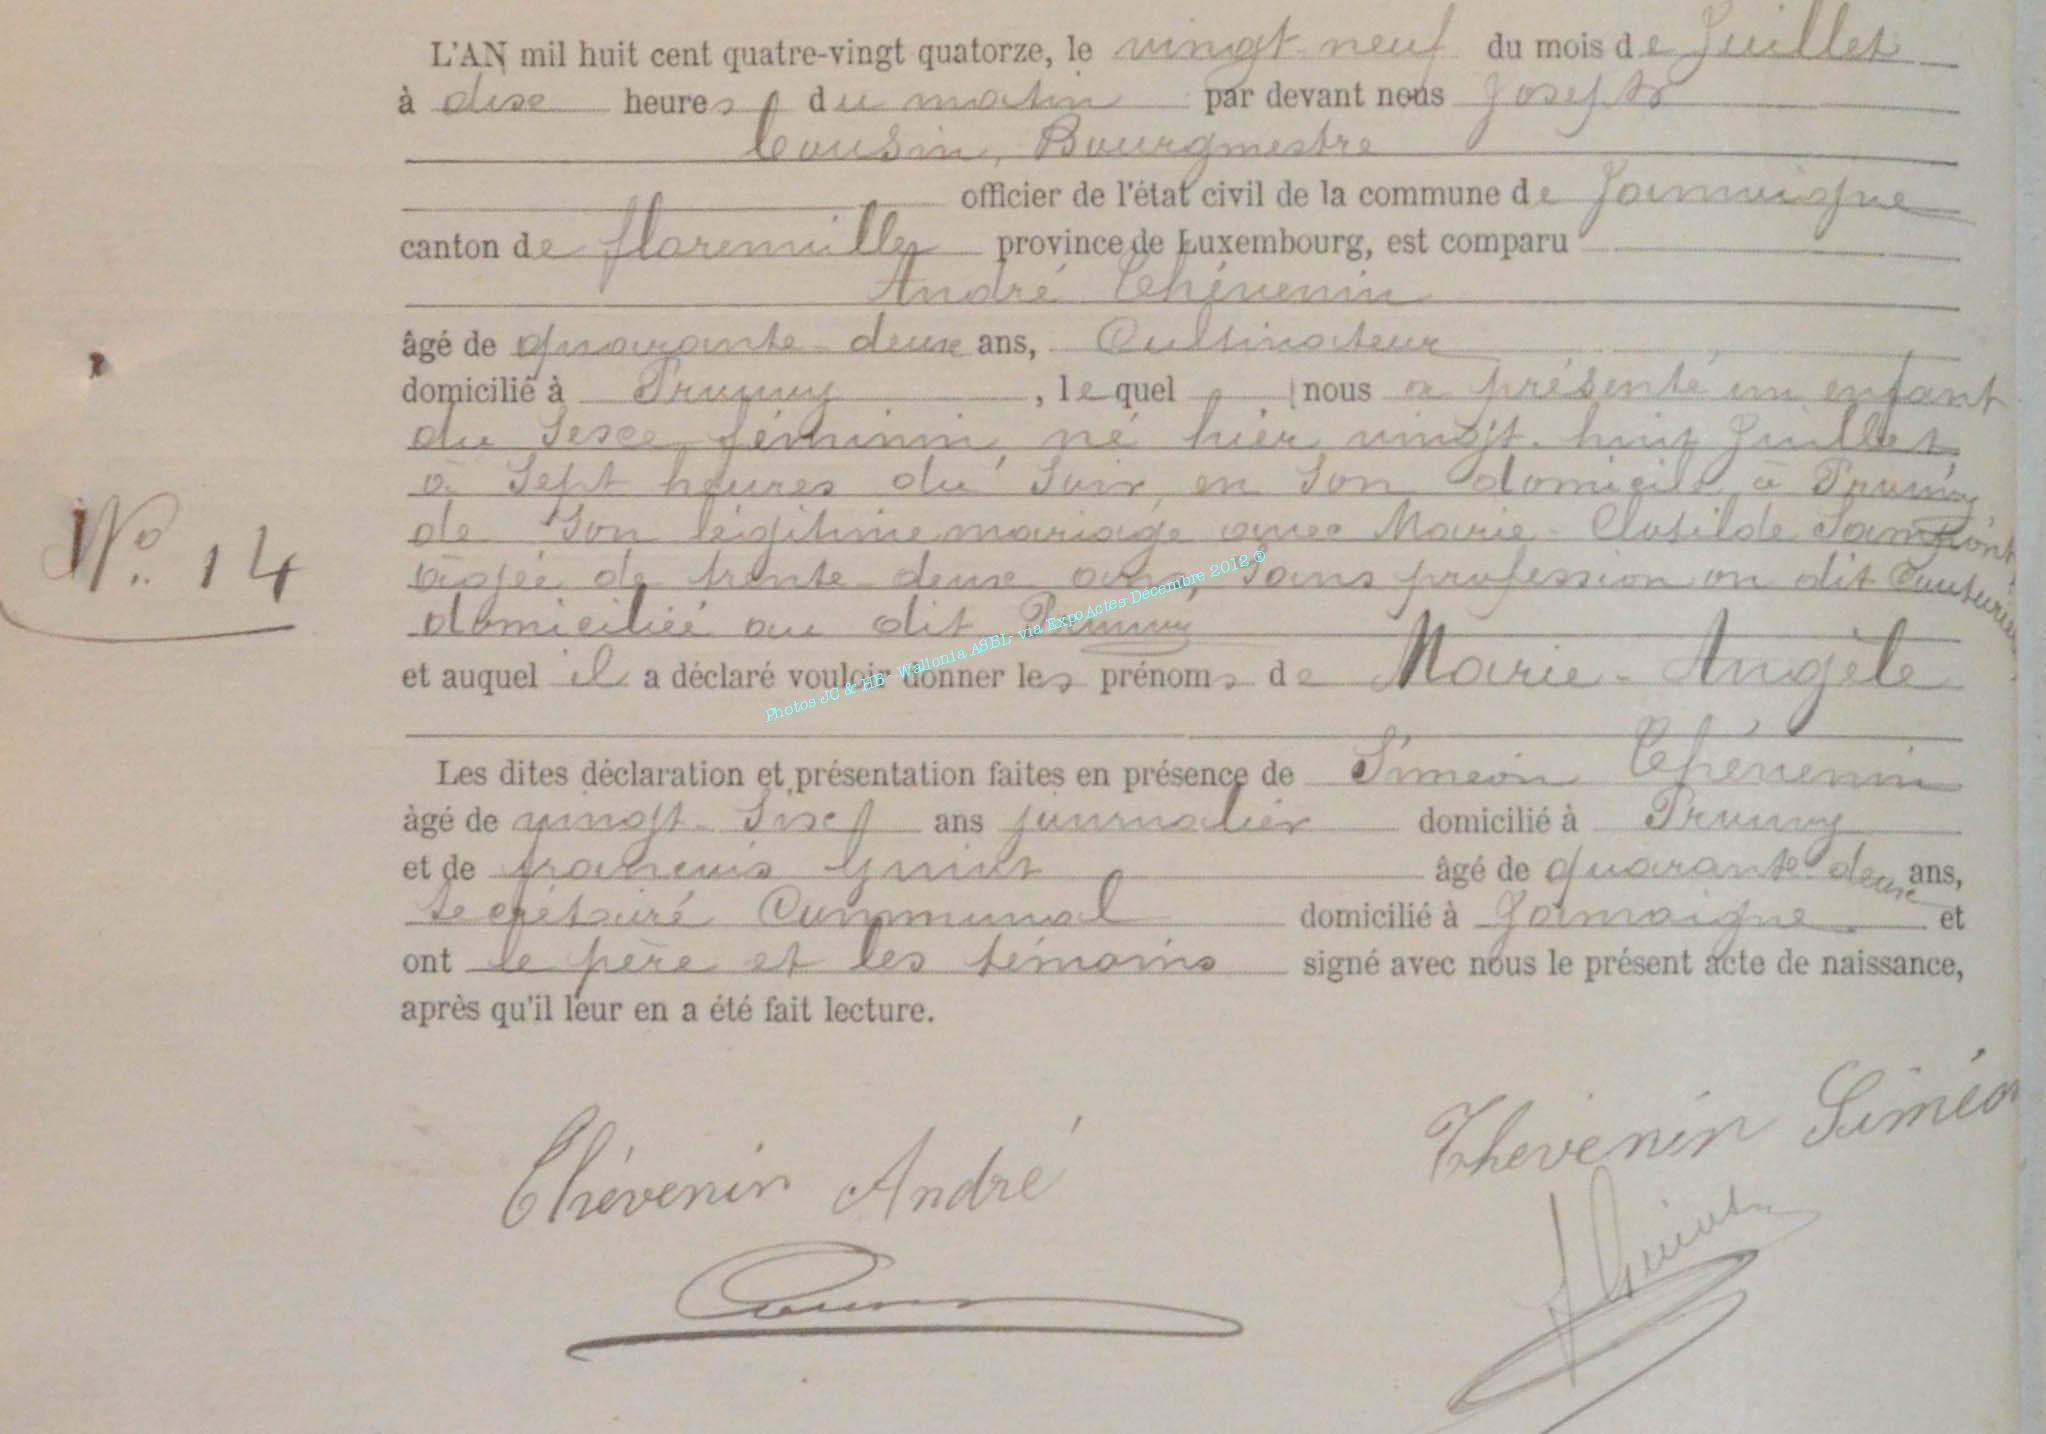 L'AN mil huit cent quatre-vingt quatorze, le vingt-neuf du mois de Juillet
à dix heures du matin par devant nous Joseph
Cousin, Bourgmestre
officier de l'état civil de la commune de Jamoigne
canton de florenville province de Luxembourg, est comparu
André Thévenin
âgé de quarante-deux ans, Cultivateur
domicilié à Prouvy, lequel nous a présenté un enfant
du Sexe féminin, né hier vingt-huit Juillet
à Sept heures du Soir, en Son domicile à Prouvy
de Son légitime mariage avec Marie-Clotilde
âgée de trente-deux ans, Sans profession on dit Couturière
domiciliée au dit Prouvy
et auquel il a déclaré vouloir donner les prénoms de Marie-Angèle
Les dites déclaration et présentation faites en présence de Siméon Thévenin
âgé de vingt-Six ans journalier domicilié à Prouvy
et de françois Guiot âgé de quarante-deux ans,
Secrétaire Communal domicilié à Jamoigne et
ont le père et les témoins signé avec nous le présent acte de naissance,
après qu'il leur en a été fait lecture.
No. 14
Photos JC & HB - Wallonia ASBL- via ExpoActes-Décembre 2012 ®
Thévenin André
Thevenin Siméon